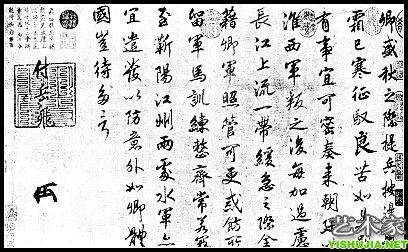 卿盛秋之際提兵按邊
霜已寒征馭良苦如是
有事宜可密奏來朝廷
淮西軍叛之後每加過慮
長江上流一帶緩急之際全
藉卿軍照管可更戒飭所
留軍馬訓練整齊常若寇
至蘄陽江州兩處水軍亦
宜遣發以防意外如卿體
國豈待多言
付岳飛
艺术家
YISHUJIA.NET